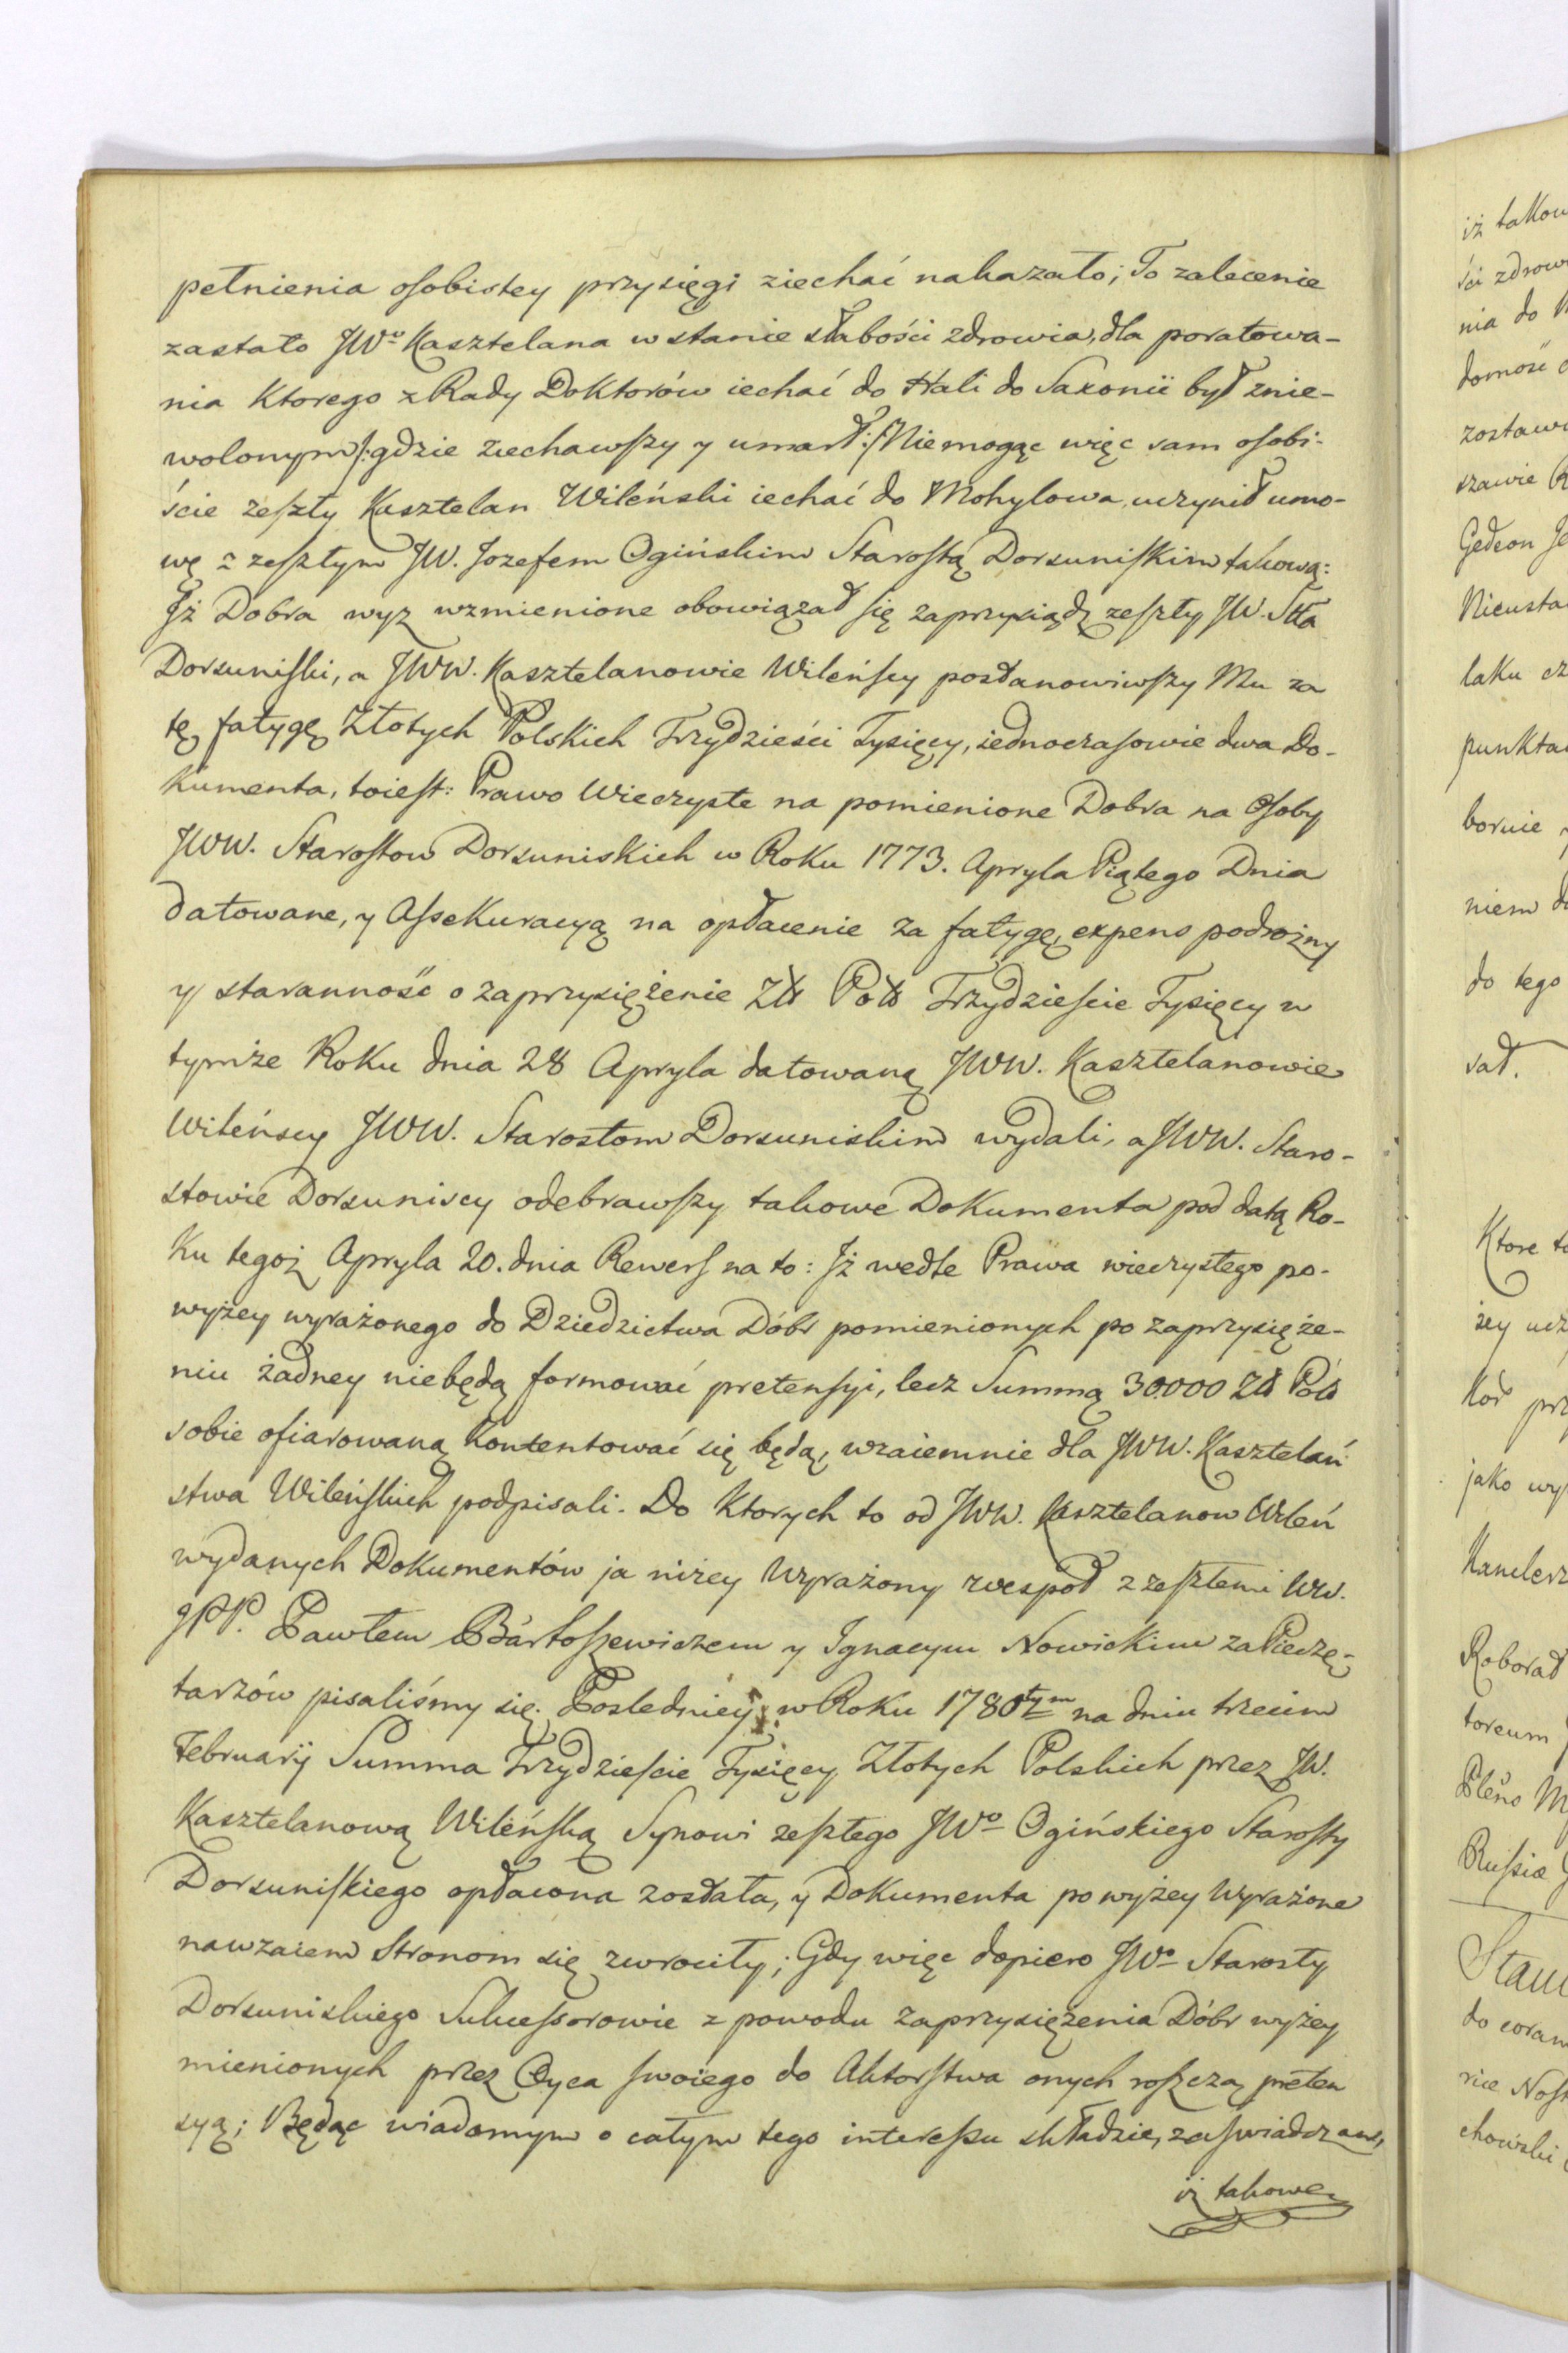 pełnienia osobistey przysięgi ziechać nakazało; To zalecenie
zastało JWo Kasztelana w stanie słabości zdrowia, dla poratowa-
nia ktorego z Rady Doktorów iechać do Hali do Saxonii był znie-
wolonym /: gdzie ziechawszy y umarł :/ Niemogąc więc sam osobi-
ście zeszły Kasztelan Wileński iechać do Mohylowa, uczynił umo-
wę z zeszłym JW. Jozefem Ogińskim Starostą Dorsuniskim takową:
Iż Dobra wyż wzmienione obowiązał się zaprzysiądz zeszły JW. Stta
Dorsuniski, a JWW. Kasztelanowie Wileńscy postanowiwszy Mu za
tę fatygę Złotych Polskich Trzydzieści Tysięcy, iednoczasowie dwa Do-
kumenta, toiest: Prawo Wieczyste na pomienione Dobra na Osoby
JWW. Starostow Dorsuniskich w Roku 1773. Apryla Piątego Dnia
datowane, y Assekuracyą na opłacenie za fatygę, expens podrożny
y staranność o zaprzysiężenie Zł Pol Trzydzieście Tysięcy w
tymże Roku dnia 28 Apryla datowaną JWW. Kasztelanowie
Wileńscy JWW. Starostom Dorsuniskim wydali, a JWW. Staro-
stowie Dorsuniscy odebrawszy takowe Dokumenta pod datą Ro-
ku tegoż Apryla 20. dnia Rewers na to: Iż wedle Prawa wieczystego po-
wyżey wyrażonego do Dziedzictwa Dóbr pomienionych po zaprzysięże-
niu żadney niebędą formować pretensyi, lecz Summą 30.000 Zł Pol
sobie ofiarowaną kontentować się będą, wzaiemnie dla JWW. Kasztelań
stwa Wileńskich podpisali. Do Ktorych to od JWW. Kasztelanow Wileń
wydanych Dokumentów ja niżey Wyrażony wespoł z zeszłemi WW.
JPP. Pawłem Bártoszewiczem y Ignacym Nowickim za Pieczę-
tarzów pisaliśmy się. Posledniey w Roku 1780tym na dniu trzecim
Februarij Summa Trzydzieście Tysięcy Złotych Polskich przez JW.
Kasztelanową Wileńską Synowi zeszłego JWo Ogińskiego Starosty
Dorsuniskiego opłacona zostata, y Dokumenta powyżey Wyrażone
nawzaiem Stronom się zwrociły; Gdy więc dopiero JWo Starosty
Dorsuniskiego Sukcessorowie z powodu zaprzysiężenia Dóbr wyżey
mienionych przez Oyca swoiego do Aktorstwa onych roszczą preten
syą; Będąc wiadomym o całym tego interessu składzie, zaświadczam,
iż takowe
iż takow
ści zdrow
nia do
domość
zostaw
szawie
Gedeon
Nieusta
laku cz
punkta
bornie
niem d
do tego
sał.
Ktore to
żey ucz
kod prz
jako wy
Kancler
Roborał
toreum
Pleno M
Russiæ
Stan
do coram
rice Nost
chowski